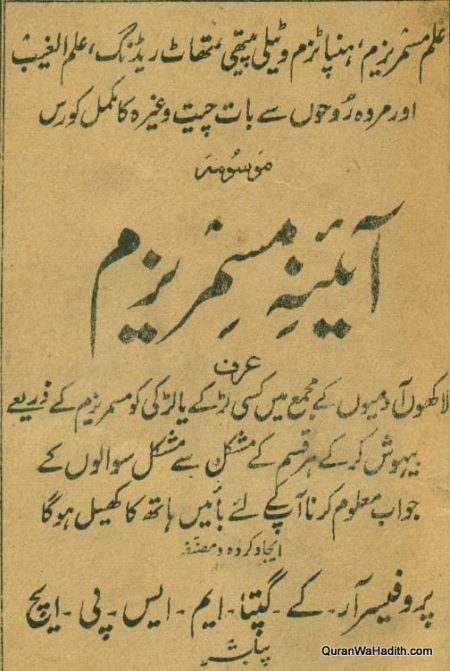 علم مسمریزم، ہپناٹزم و ٹیلی پیتھی، تھاٹ ریڈنگ، علم الغیب
اور مردہ رُوحوں سے بات چیت وغیرہ کا مکمل کورس
موسُومہ
آئینہِ مسمِریزم
عرف
لاکھوں آدمیوں کے مجمع میں کسی لڑکے یا لڑکی کو مسمریزم کے ذریعے
بیہوش کر کے ہر قسم کے مشکل سے مشکل سوالوں کے
جواب معلوم کرنا آپکے لئے بائیں ہاتھ کا کھیل ہوگا
ایجاد کردہ و مصنفہ
پروفیسر آر۔ کے۔ گپتا۔ ایم۔ ایس۔ پی۔ ایچ
پبلشر
QuranWaHadith.com